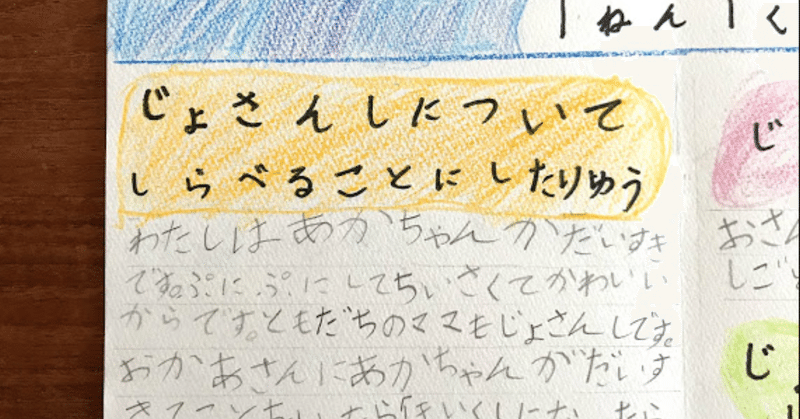 1ねん1く
じょさんしについて
しらべることにしたりゆう
わたしはあかちゃんがだいすき
です。ぷにぷにしてちいさくてかわいい
からです。ともだちのママもじょさんしです。
おかあさんにあかちゃんがだいす
じ
おさん
しごと
じ